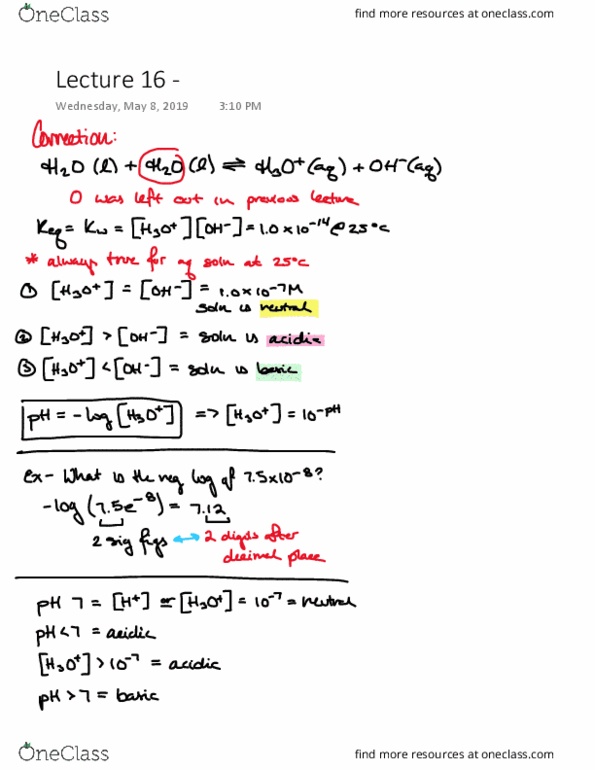 OneClass
find more resources at oneclass.com
Lecture 16 -
Wednesday, May 8, 2019 3:10 PM
Correction:
H₂O (l) + H₂O (l) ⇌ H₃O⁺(aq) + OH⁻(aq)
O was left out in previous lecture
Keq = Kw = [H₃O⁺][OH⁻] = 1.0 x 10⁻¹⁴ @ 25°C
* always true for aq soln at 25°C
① [H₃O⁺] = [OH⁻] = 1.0 x 10⁻⁷ M
soln is neutral
② [H₃O⁺] > [OH⁻] = soln is acidic
③ [H₃O⁺] < [OH⁻] = soln is basic
pH = -log [H₃O⁺] => [H₃O⁺] = 10⁻ᵖᴴ
Ex- What is the neg log of 7.5x10⁻⁸?
-log (7.5e⁻⁸) = 7.12
2 sig figs ↔ 2 digits after
decimal place
pH 7 = [H⁺] or [H₃O⁺] = 10⁻⁷ = neutral
pH < 7 = acidic
[H₃O⁺] > 10⁻⁷ = acidic
pH > 7 = basic
OneClass
find more resources at oneclass.com